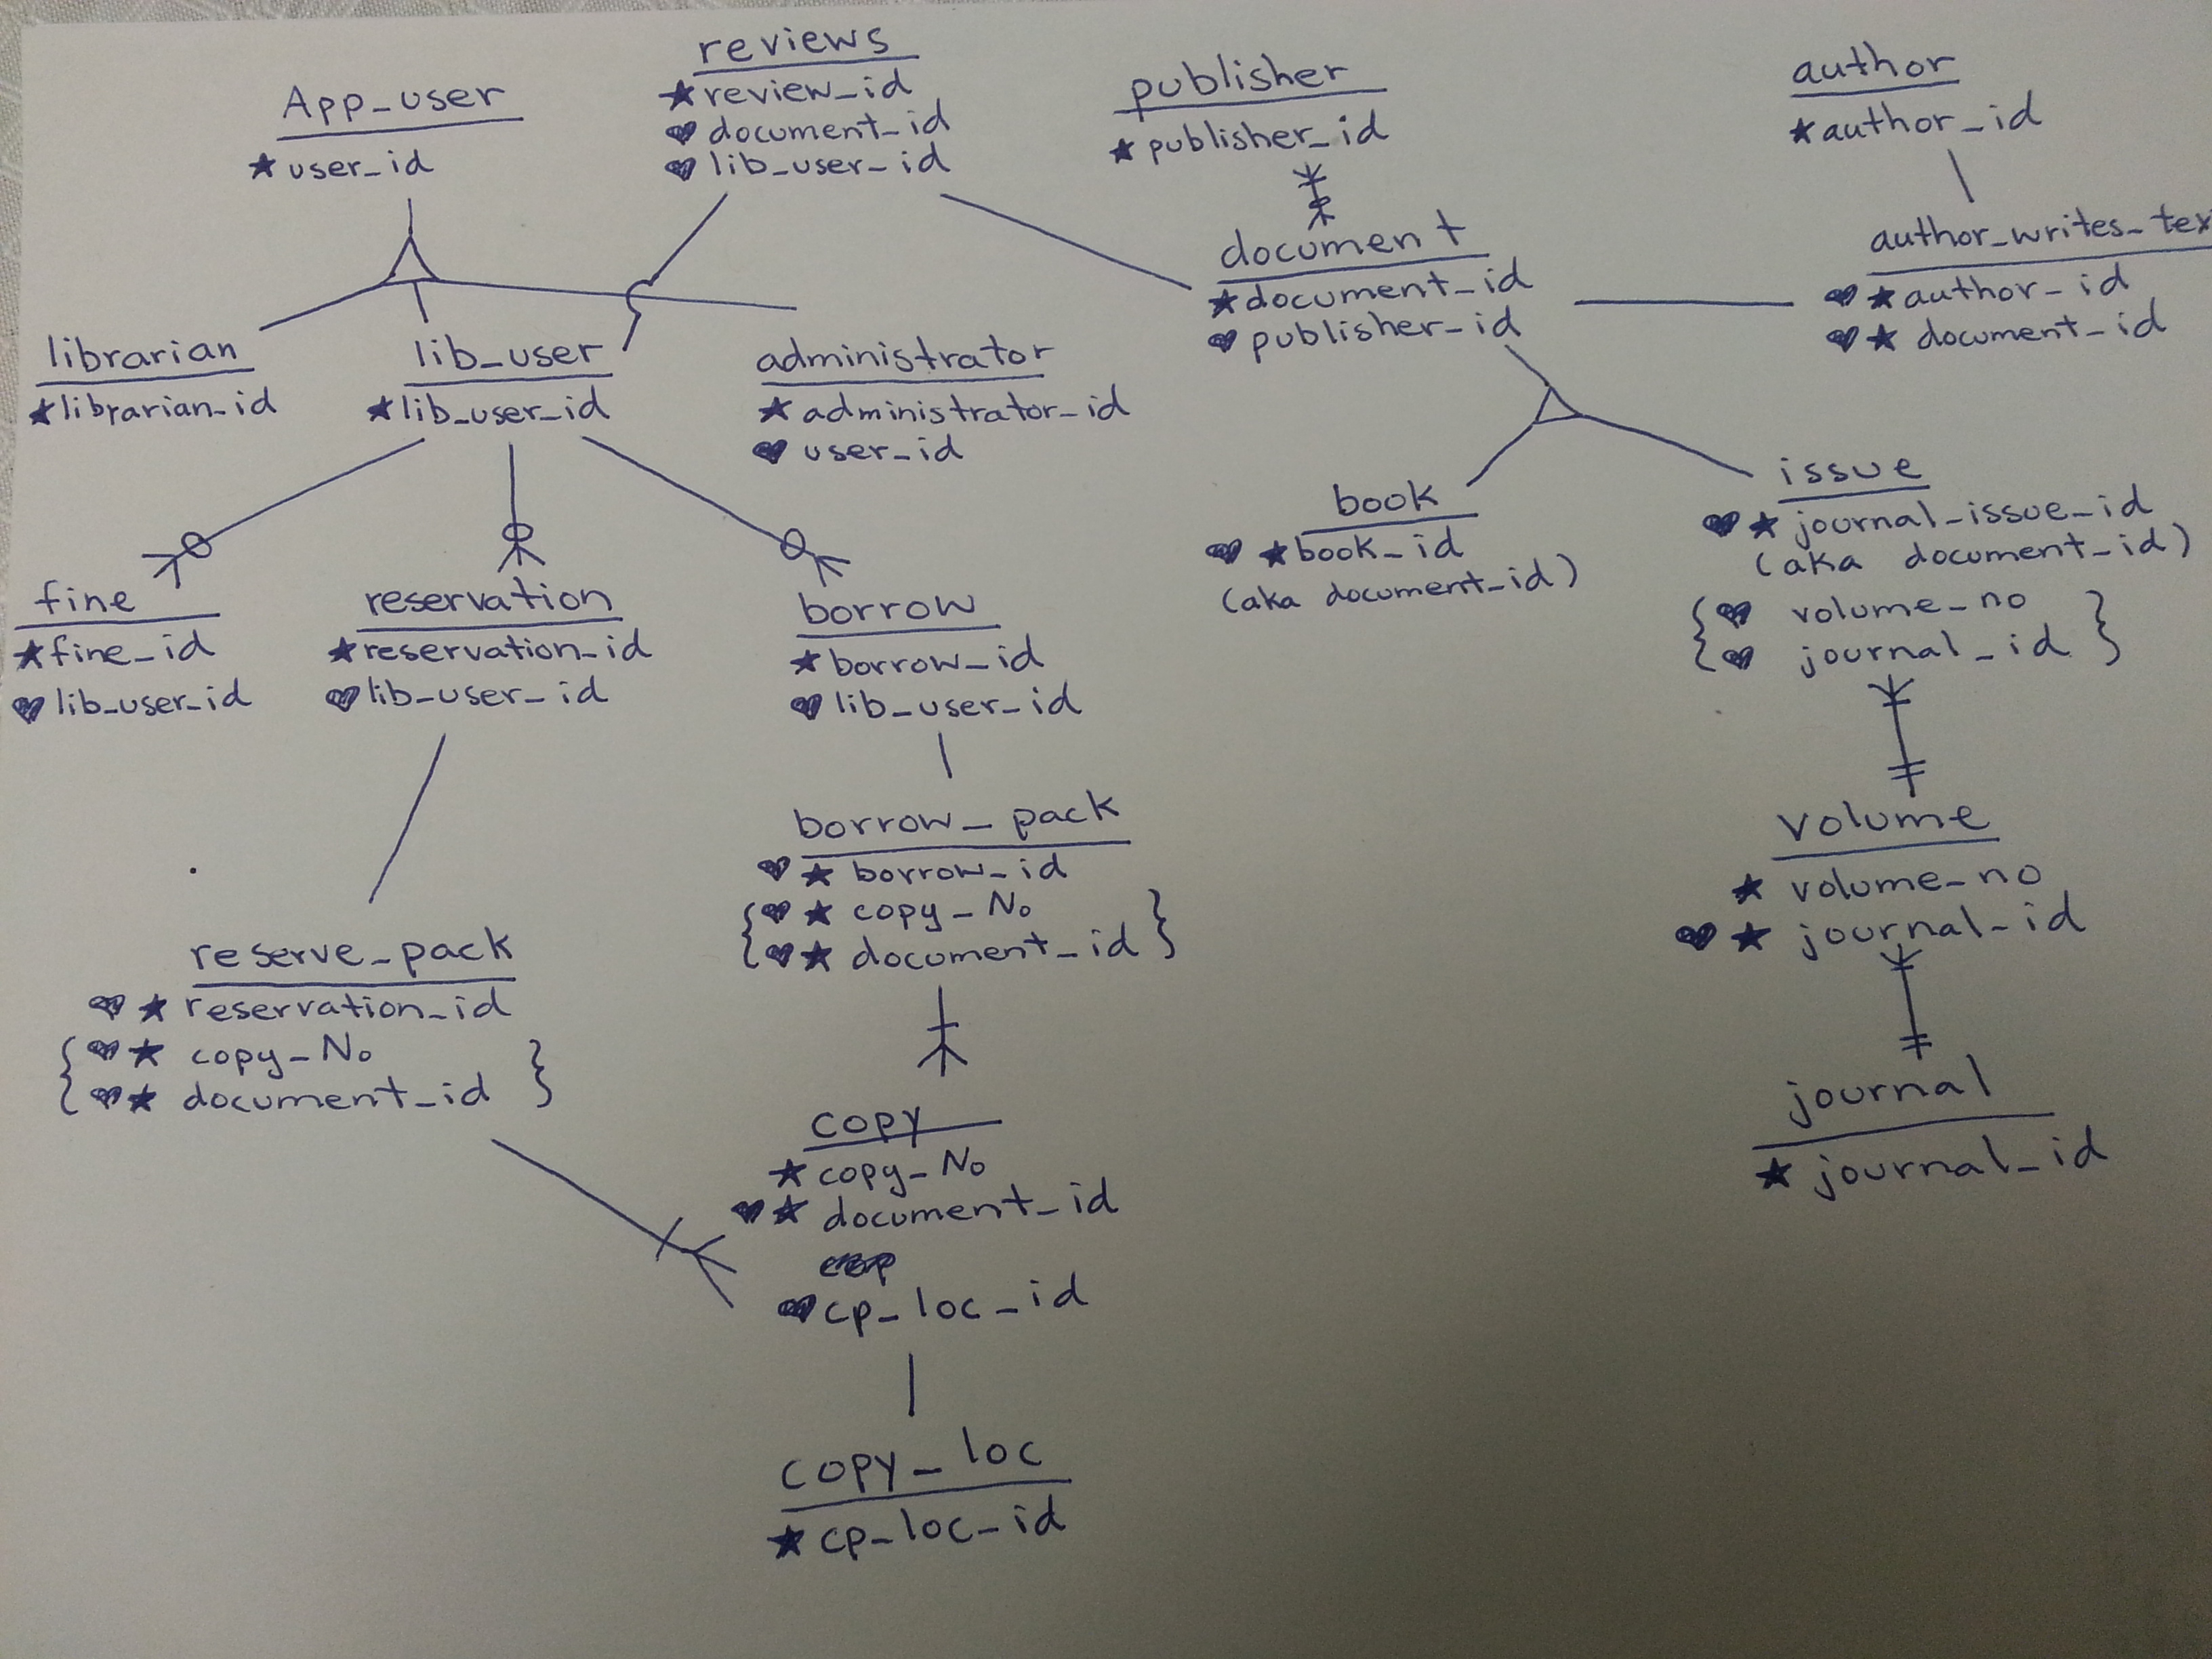 App_user
★ user_id
reviews
★ review_id
♥ document_id
♥ lib_user_id
publisher
★ publisher_id
author
★ author_id
document
★ document_id
♥ publisher_id
author_writes_tex
♥ ★ author_id
♥ ★ document_id
librarian
★ librarian_id
lib_user
★ lib_user_id
administrator
★ administrator_id
♥ user_id
book
♥ ★ book_id
(aka document_id)
issue
♥ ★ journal_issue_id
(aka document_id)
{ ♥ volume_no }
{ ♥ journal_id }
fine
★ fine_id
♥ lib_user_id
reservation
★ reservation_id
♥ lib_user_id
borrow
★ borrow_id
♥ lib_user_id
borrow_pack
♥ ★ borrow_id
{ ♥ ★ copy_No }
{ ♥ ★ document_id }
volume
★ volume_no
♥ ★ journal_id
reserve_pack
♥ ★ reservation_id
{ ♥ ★ copy_No }
{ ♥ ★ document_id }
copy
★ copy_No
♥ ★ document_id
♥ cp_loc_id
journal
★ journal_id
copy_loc
★ cp_loc_id